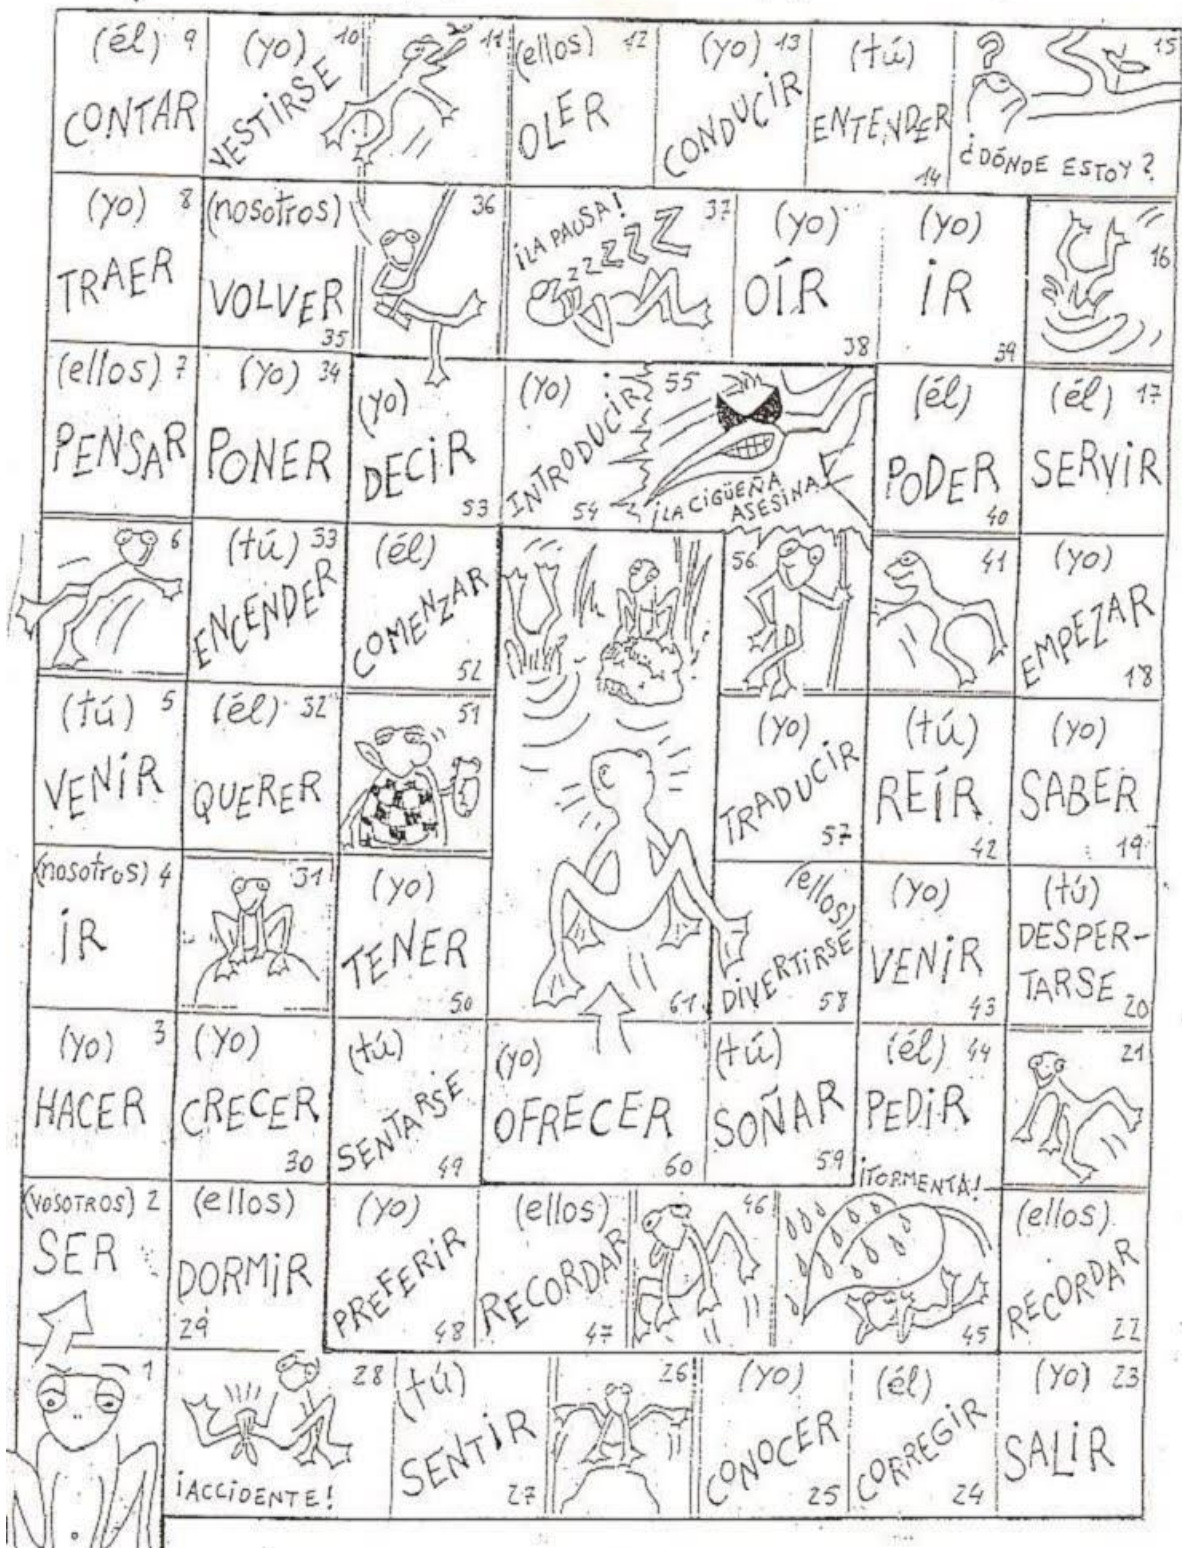 (él) 9
CONTAR
(yo) 10
VESTIRSE
11
(ellos) 12
OLER
(yo) 13
CONDUCIR
(tú)
ENTENDER
14
? 15
¿DÓNDE ESTOY?
(yo) 8
TRAER
(nosotros)
VOLVER
35
36
¡LA PAUSA! 37
ZZZZZZZ
(yo)
OÍR
38
(yo)
IR
39
16
(ellos) 7
PENSAR
(yo) 34
PONER
(yo)
DECIR
53
(yo)
INTRODUCIR
54
55
¡LA CIGÜEÑA
ASESINA!
(él)
PODER
40
(él) 17
SERVIR
6
(tú) 33
ENCENDER
(él)
COMENZAR
52
56
41
(yo)
EMPEZAR
18
(tú) 5
VENIR
(él) 32
QUERER
51
(yo)
TRADUCIR
57
(tú)
REÍR
42
(yo)
SABER
19
(nosotros) 4
IR
31
(yo)
TENER
50
61
(ellos)
DIVERTIRSE
58
(yo)
VENIR
43
(tú)
DESPER-
TARSE
20
(yo) 3
HACER
(yo)
CRECER
30
(tú)
SENTARSE
49
(yo)
OFRECER
60
(tú)
SOÑAR
59
(él) 44
PEDIR
21
(VOSOTROS) 2
SER
(ellos)
DORMIR
29
(yo)
PREFERIR
48
(ellos)
RECORDAR
47
46
¡TORMENTA!
45
(ellos)
RECORDAR
22
1
28
¡ACCIDENTE!
(tú)
SENTIR
27
26
(yo)
CONOCER
25
(él)
CORREGIR
24
(yo) 23
SALIR